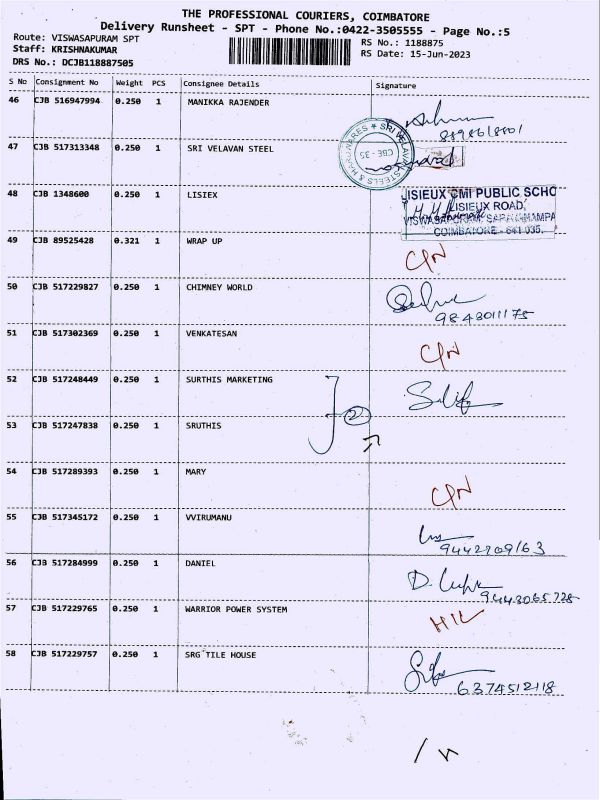 THE PROFESSIONAL COURIERS, COIMBATORE
Delivery Runsheet - SPT - Phone No.:0422-3505555 - Page No.:5
Route: VISWASAPURAM SPT
RS No.: 1188875
Staff: KRISHNAKUMAR
RS Date: 15-Jun-2023
DRS No.: DCJB118887505
S No Consignment No Weight PCS Consignee Details Signature
46 CJB 516947994 0.250 1 MANIKKA RAJENDER
47 CJB 517313348 0.250 1 SRI VELAVAN STEEL
SRI VELAVAN STEELS & HARDWARES
CBE - 35
48 CJB 1348600 0.250 1 LISIEX
LISIEUX CMI PUBLIC SCHO
LISIEUX ROAD,
COIMBATORE - 641 035.
49 CJB 89525428 0.321 1 WRAP UP
50 CJB 517229827 0.250 1 CHIMNEY WORLD
9843011175
51 CJB 517302369 0.250 1 VENKATESAN
52 CJB 517248449 0.250 1 SURTHIS MARKETING
2
53 CJB 517247838 0.250 1 SRUTHIS
54 CJB 517289393 0.250 1 MARY
55 CJB 517345172 0.250 1 VVIRUMANU
9442709163
56 CJB 517284999 0.250 1 DANIEL
9443065728
57 CJB 517229765 0.250 1 WARRIOR POWER SYSTEM
58 CJB 517229757 0.250 1 SRG TILE HOUSE
6374512118